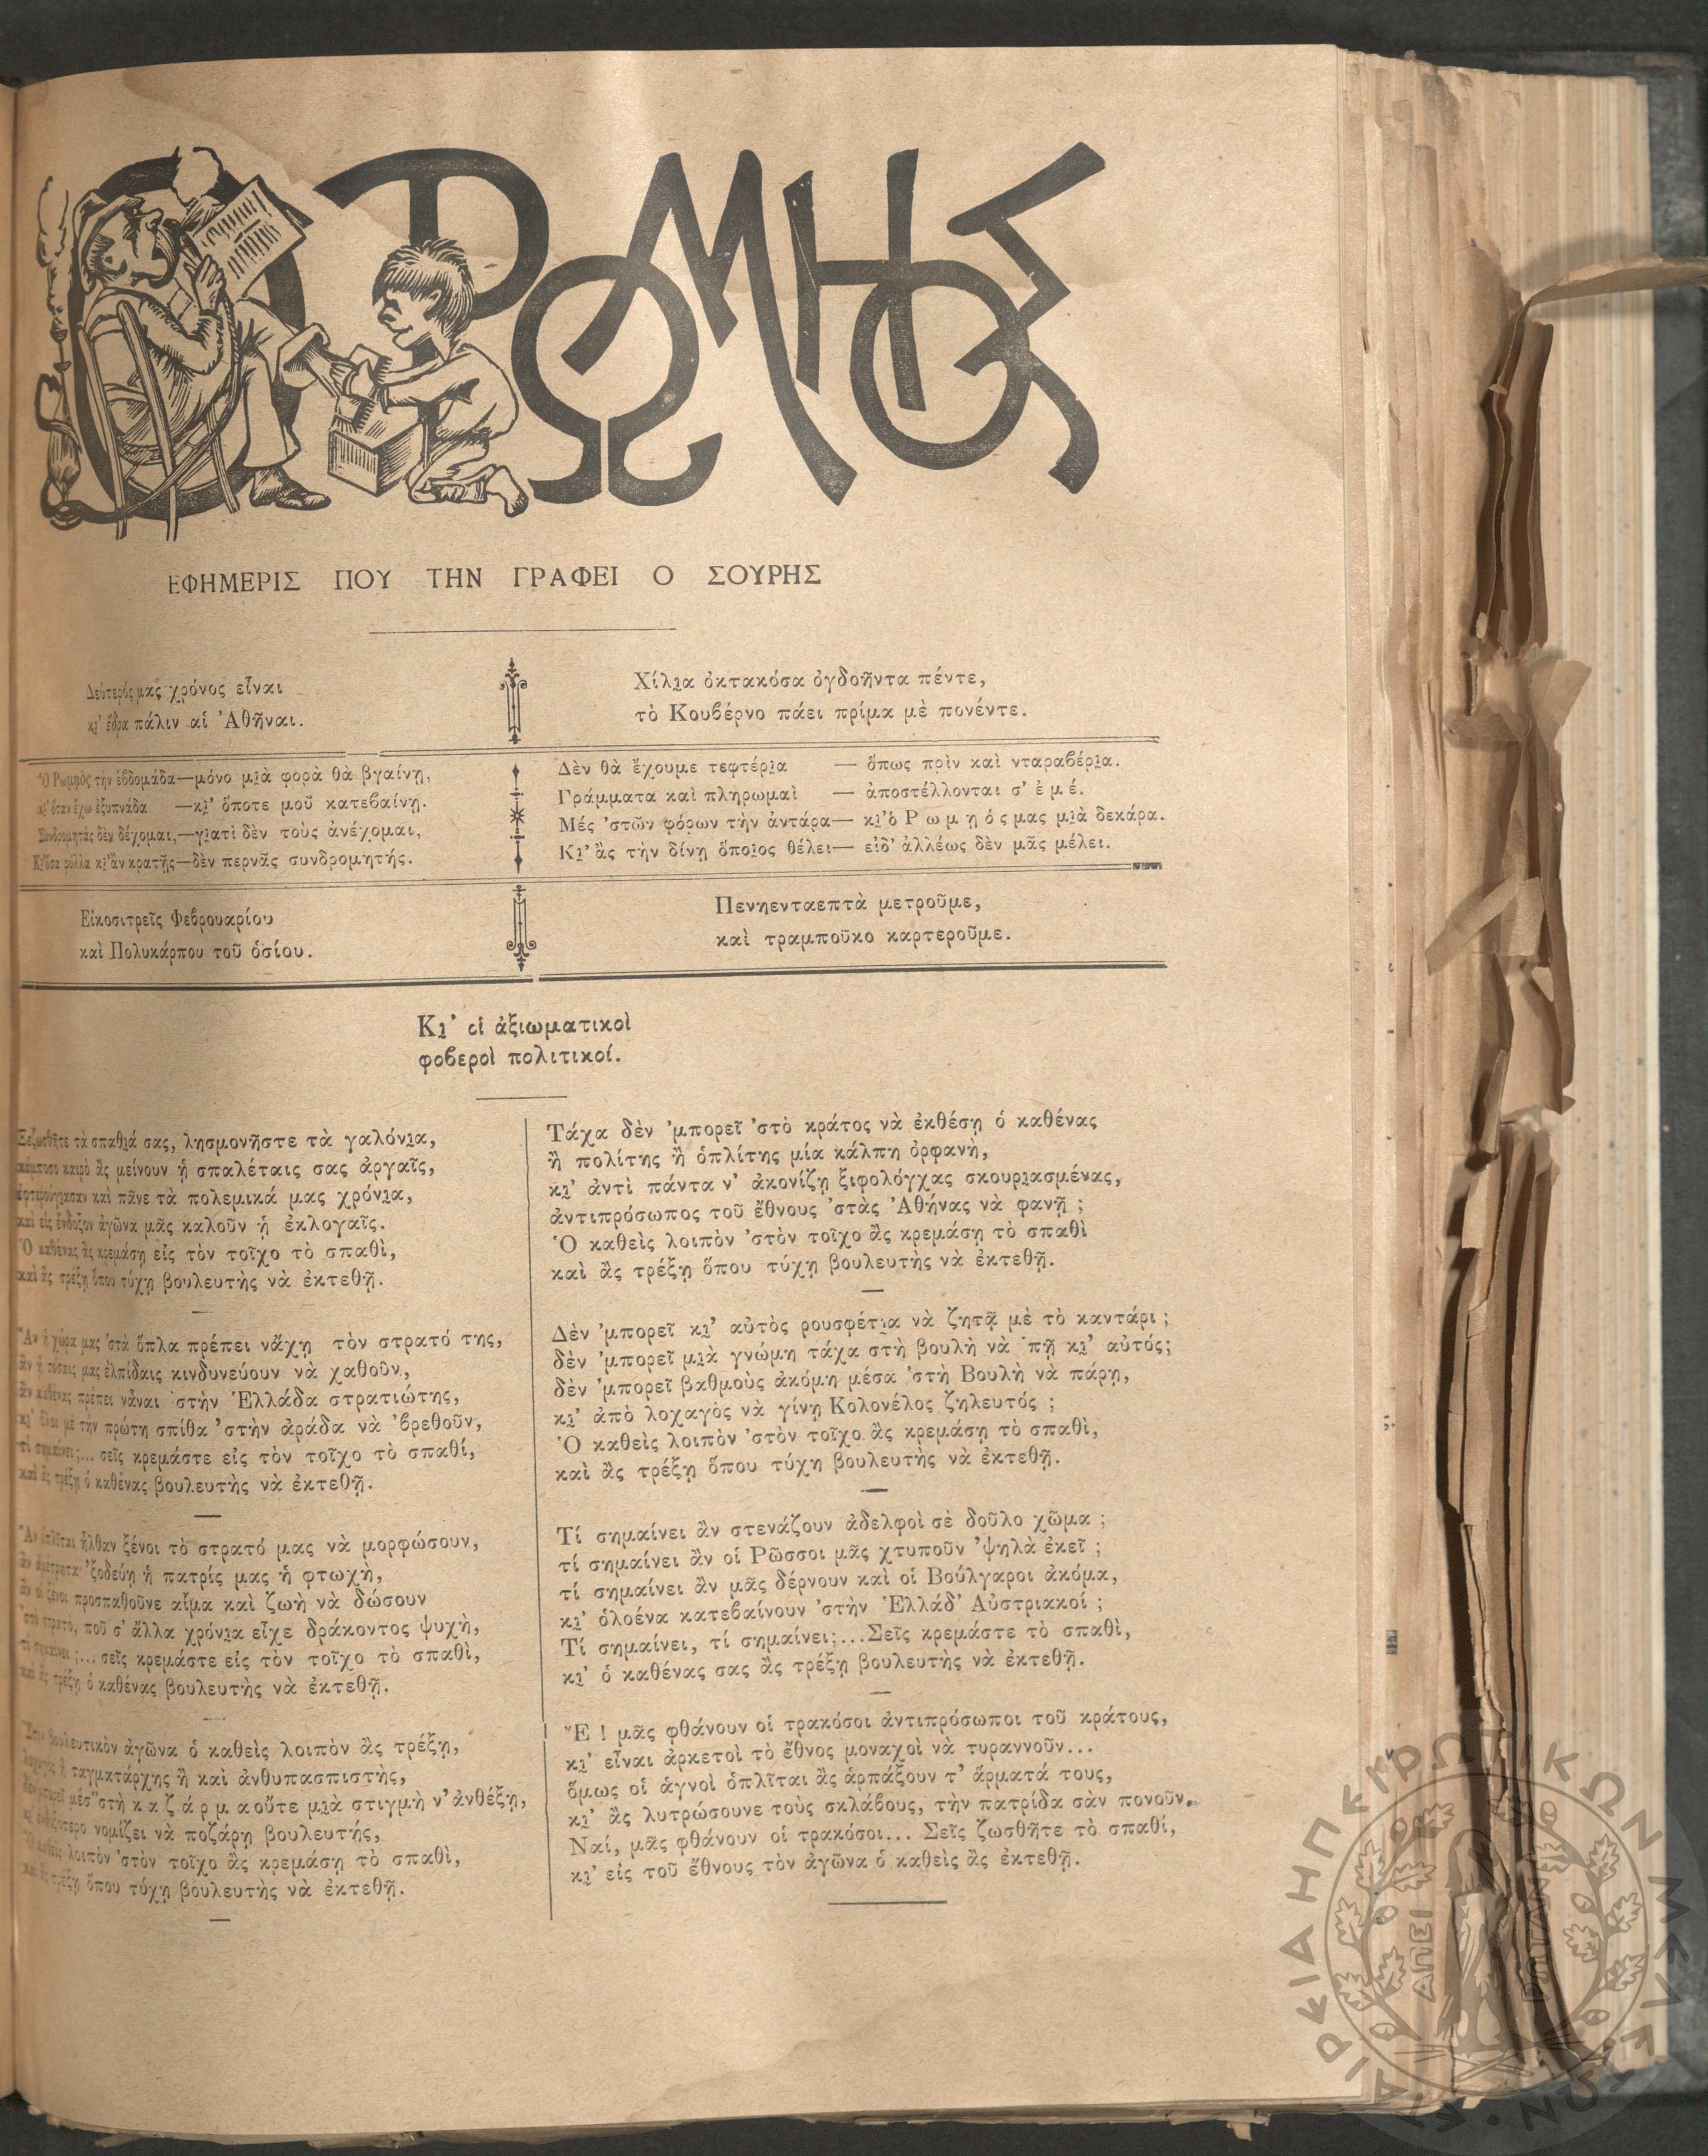 Ο ΡΩΜΗΟΣ
ΕΦΗΜΕΡΙΣ ΠΟΥ ΤΗΝ ΓΡΑΦΕΙ Ο ΣΟΥΡΗΣ
Δεύτερός μας χρόνος εἶναι
κι' ἕδρα πάλιν αἱ Ἀθῆναι.
Χίλια ὀκτακόσα ὀγδοῆντα πέντε,
τὸ Κουβέρνο πάει πρίμα μὲ πονέντε.
Ὁ Ρωμῃὸς τὴν ἑβδομάδα—μόνο μιὰ φορὰ θὰ βγαίνῃ,
κι' ὅταν ἔχω ἐξυπνάδα —κι' ὅποτε μοῦ κατεβαίνῃ.
Συνδρομητὰς δὲν δέχομαι,—γιατὶ δὲν τοὺς ἀνέχομαι,
Κι' ὅσα φύλλα κι' ἂν κρατῇς—δὲν περνᾶς συνδρομητής.
Δὲν θὰ ἔχουμε τεφτέρια — ὅπως πρὶν καὶ νταραβέρια.
Γράμματα καὶ πληρωμαὶ — ἀποστέλλονται σ' ἐμέ.
Μές 'στῶν φόρων τὴν ἀντάρα— κι' ὁ Ρωμῃός μας μιὰ δεκάρα.
Κι' ἂς τὴν δίνῃ ὅποιος θέλει— εἰδ' ἀλλέως δὲν μᾶς μέλει.
Εἰκοσιτρεῖς Φεβρουαρίου
καὶ Πολυκάρπου τοῦ ὁσίου.
Πενηενταεπτὰ μετροῦμε,
καὶ τραμποῦκο καρτεροῦμε.
Κι' οἱ ἀξιωματικοὶ
φοβεροὶ πολιτικοί.
Ξεζωσθῆτε τὰ σπαθιά σας, λησμονῆστε τὰ γαλόνια,
κάμποσο καιρὸ ἂς μείνουν ᾑ σπαλέταις σας ἀργαῖς,
ἐφτερούγιασαν καὶ πᾶνε τὰ πολεμικά μας χρόνια,
καὶ εἰς ἔνδοξον ἀγῶνα μᾶς καλοῦν ᾑ ἐκλογαῖς.
Ὁ καθένας ἂς κρεμάσῃ εἰς τὸν τοῖχο τὸ σπαθὶ,
καὶ ἂς τρέξῃ ὅπου τύχῃ βουλευτὴς νὰ ἐκτεθῇ.
Ἂν ἡ χώρα μας 'στὰ ὅπλα πρέπει νἄχῃ τὸν στρατό της,
ἂν ᾑ τόσαις μας ἐλπίδαις κινδυνεύουν νὰ χαθοῦν,
ἂν καθένας πρέπει νἆναι 'στὴν Ἑλλάδα στρατιώτης,
κι' ὅλοι μὲ τὴν πρώτη σπίθα 'στὴν ἀράδα νὰ 'βρεθοῦν,
τί σημαίνει;... σεῖς κρεμάστε εἰς τὸν τοῖχο τὸ σπαθί,
καὶ ἂς τρέξῃ ὁ καθένας βουλευτὴς νὰ ἐκτεθῇ.
Ἂν ὁπλῖται ἦλθαν ξένοι τὸ στρατό μας νὰ μορφώσουν,
ἂν ἀμέτρητα 'ξοδεύῃ ἡ πατρίς μας ἡ φτωχὴ,
ἂν οἱ ξένοι προσπαθοῦνε αἷμα καὶ ζωὴ νὰ δώσουν
'στὸ στρατὸ, ποῦ σ' ἄλλα χρόνια εἶχε δράκοντος ψυχὴ,
τί σημαίνει;... σεῖς κρεμάστε εἰς τὸν τοῖχο τὸ σπαθὶ,
καὶ ἂς τρέξῃ ὁ καθένας βουλευτὴς νὰ ἐκτεθῇ.
Στὸν βουλευτικὸν ἀγῶνα ὁ καθεὶς λοιπὸν ἂς τρέξῃ,
λοχαγὸς ἢ ταγματάρχης ἢ καὶ ἀνθυπασπιστὴς,
δὲν μπορεῖ μέσ' 'στὴ καζάρμα οὔτε μιὰ στιγμὴ ν' ἀνθέξῃ,
κι' νομίζει νὰ ποζάρῃ βουλευτής,
Ὁ καθεὶς λοιπὸν 'στὸν τοῖχο ἂς κρεμάσῃ τὸ σπαθὶ,
καὶ ἂς τρέξῃ ὅπου τύχῃ βουλευτὴς νὰ ἐκτεθῇ.
Τάχα δὲν 'μπορεῖ 'στὸ κράτος νὰ ἐκθέσῃ ὁ καθένας
ἢ πολίτης ἢ ὁπλίτης μία κάλπη ὀρφανὴ,
κι' ἀντὶ πάντα ν' ἀκονίζῃ ξιφολόγχας σκουριασμένας,
ἀντιπρόσωπος τοῦ ἔθνους 'στὰς Ἀθήνας νὰ φανῇ ;
Ὁ καθεὶς λοιπὸν 'στὸν τοῖχο ἂς κρεμάσῃ τὸ σπαθὶ
καὶ ἂς τρέξῃ ὅπου τύχῃ βουλευτὴς νὰ ἐκτεθῇ.
Δὲν 'μπορεῖ κι' αὐτὸς ρουσφέτια νὰ ζητᾷ μὲ τὸ καντάρι ;
δὲν 'μπορεῖ μιὰ γνώμη τάχα στὴ βουλὴ νὰ 'πῇ κι' αὐτός;
δὲν 'μπορεῖ βαθμοὺς ἀκόμη μέσα 'στὴ Βουλὴ νὰ πάρῃ,
κι' ἀπὸ λοχαγὸς νὰ γίνῃ Κολονέλος ζηλευτός ;
Ὁ καθεὶς λοιπὸν 'στὸν τοῖχο ἂς κρεμάσῃ τὸ σπαθὶ,
καὶ ἂς τρέξῃ ὅπου τύχῃ βουλευτὴς νὰ ἐκτεθῇ.
Τί σημαίνει ἂν στενάζουν ἀδελφοὶ σὲ δοῦλο χῶμα ;
τί σημαίνει ἂν οἱ Ρῶσσοι μᾶς χτυποῦν 'ψηλὰ ἐκεῖ ;
τί σημαίνει ἂν μᾶς δέρνουν καὶ οἱ Βούλγαροι ἀκόμα,
κι' ὁλοένα κατεβαίνουν 'στὴν Ἑλλάδ' Αὐστριακοί ;
Τί σημαίνει, τί σημαίνει;...Σεῖς κρεμάστε τὸ σπαθὶ,
κι' ὁ καθένας σας ἂς τρέξῃ βουλευτὴς νὰ ἐκτεθῇ.
Ἔ ! μᾶς φθάνουν οἱ τρακόσοι ἀντιπρόσωποι τοῦ κράτους,
κι' εἶναι ἀρκετοὶ τὸ ἔθνος μοναχοὶ νὰ τυραννοῦν...
ὅμως οἱ ἁγνοὶ ὁπλῖται ἂς ἁρπάξουν τ' ἅρματά τους,
κι' ἂς λυτρώσουνε τοὺς σκλάβους, τὴν πατρίδα σὰν πονοῦν.
Ναί, μᾶς φθάνουν οἱ τρακόσοι... Σεῖς ζωσθῆτε τὸ σπαθί,
κι' εἰς τοῦ ἔθνους τὸν ἀγῶνα ὁ καθεὶς ἂς ἐκτεθῇ.
ΕΤΑΙΡΕΙΑ ΗΠΕΙΡΩΤΙΚΩΝ ΜΕΛΕΤΩΝ
ΑΠΕΙ ΡΩΤΑΝ